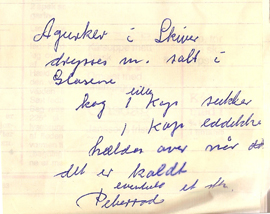 Agurker i Skiver
drysses m. salt i
Glasene
kog 1 Kop sukker
1 Kop eddike
hældes over når
det er koldt
eventuelt et stk.
Peberrod